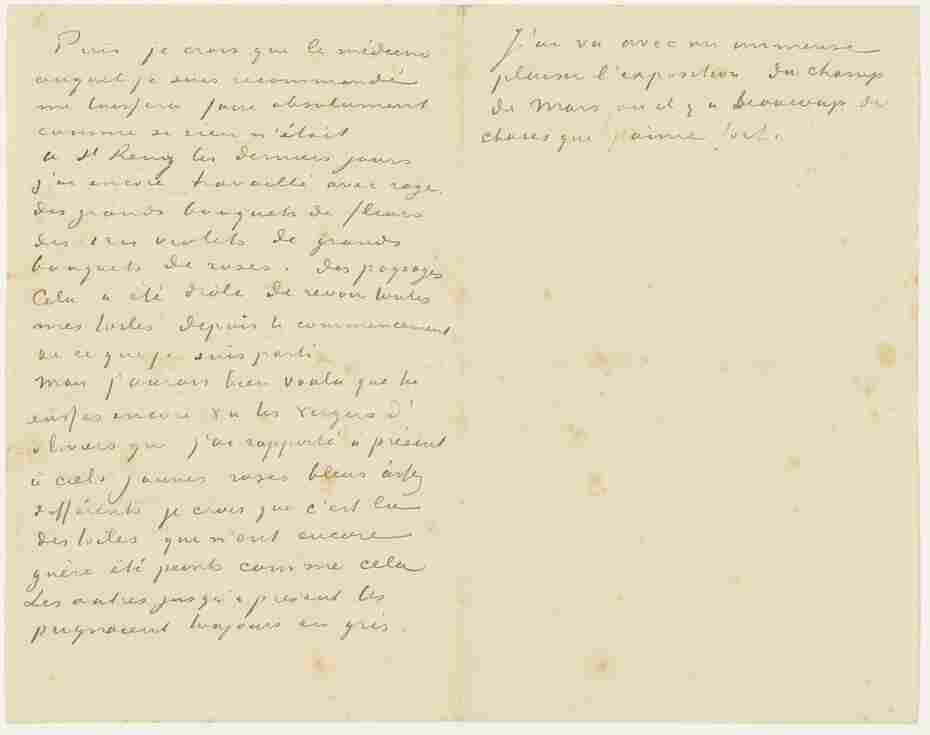 Puis je crois que le médecin
auquel je suis recommandé
me laissera faire absolument
comme si rien n'était
a St Remy les derniers jours
j'ai encore travaillé avec rage.
des grands bouquets de fleurs
des iris violets de grands
bouquets de roses. des paysages
Cela a été drôle de revoir toutes
mes toiles depuis le commencement
de ce que je suis parti
mais j'aurais bien voulu que tu
eusses encore vu les vergers d'
oliviers que j'ai rapporté à présent
à ciels jaunes roses bleus assez
différents je crois que c'est là
des toiles qui n'ont encore
guère été peints comme cela
Les autres jusqu'à present les
peignaient toujours en gris.
J'ai vu avec un immense
plaisir l'exposition du champ
de Mars ou il y a beaucoup de
choses que j'aime fort.